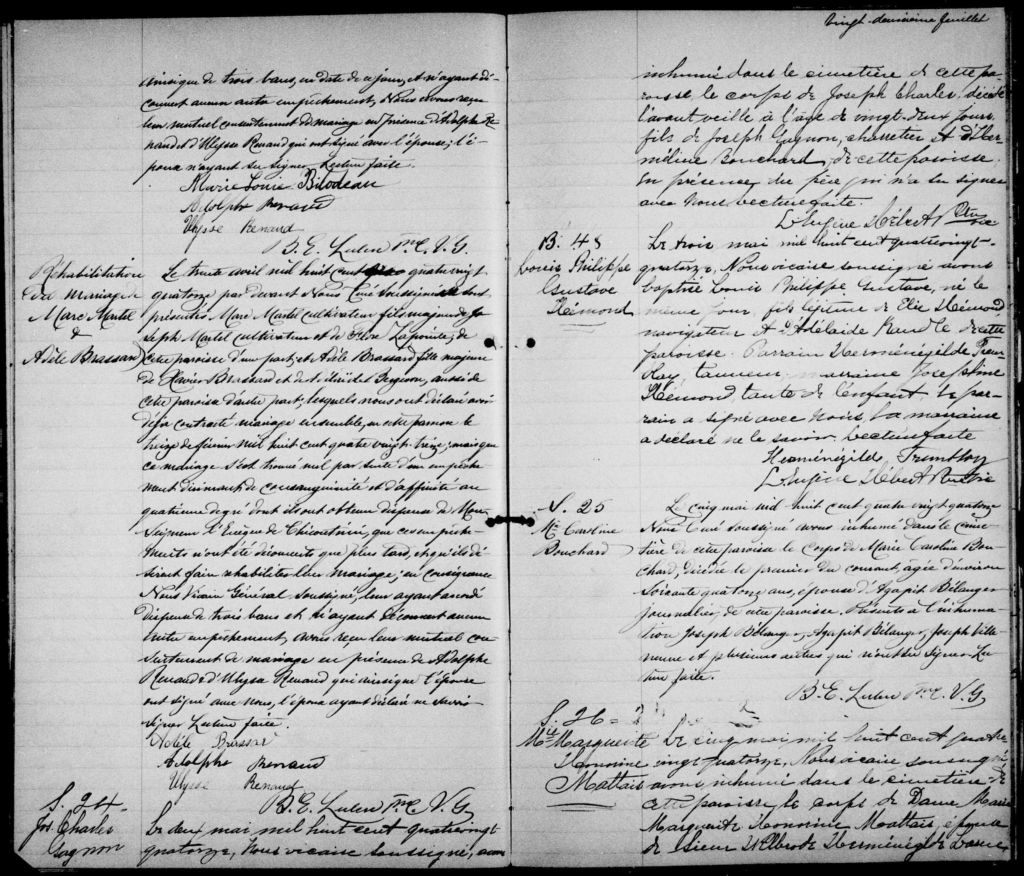 ainsi que de trois bans, en date de ce jour, et n'ayant dé-
couvert aucun autre empêchement, Nous avons reçu
leur mutuel consentement de mariage en présence d'Adolphe Re-
naud et d'Ulysse Renaud qui ont signé avec l'épouse; l'é-
poux n'ayant su signer. Lecture faite.
Marie Louise Bilodeau
Adolphe Renaud
Ulysse Renaud
B. E. Leclerc Ptre. V. G.
Réhabilitation
du mariage de
Marc Martel
&
Adèle Brassard
Le trente avril mil huit cent quatre vingt
quatorze par devant Nous Curé soussigné se sont
présentés Marc Martel cultivateur fils majeur de Jo-
seph Martel cultivateur et de Lapointe, de
cette paroisse d'une part; et Adèle Brassard, fille majeure
de Xavier Brassard et de Bergeron, aussi de
cette paroisse d'autre part, lesquels nous ont déclaré avoir
déjà contracté mariage ensemble, en cette paroisse le
treize de février mil huit cent quatre vingt-treize; mais que
ce mariage s'est trouvé nul par suite d'un empêche-
ment dirimant de consanguinité et d'affinité au
quatrième degré dont ils ont obtenu dispense de Mon-
seigneur l'Evêque de Chicoutimi, que ces empêche-
ments n'ont été découverts que plus tard, et qu'ils dé-
sirent faire réhabiliter leur mariage; en conséquence
Nous Vicaire Général soussigné, leur ayant accordé
dispense de trois bans et n'ayant découvert aucun
autre empêchement, avons reçu leur mutuel con-
sentement de mariage en présence de Adolphe
Renaud & d'Ulysse Renaud qui ainsi que l'épouse
ont signé avec nous, l'époux ayant déclaré ne savoir
signer. Lecture faite.
Adèle Brassar
Adolphe Renaud
Ulysse Renaud
B. E. Leclerc Ptre. V. G.
S. 24.
Jos. Charles
Gagnon
Le deux mai mil huit cent quatrevingt
quatorze, Nous vicaire soussigné, avons
Vingt-deuxième feuillet
inhumé dans le cimetière de cette pa-
roisse le corps de Joseph Charles, décédé
l'avant veille à l'âge de vingt-deux jours
fils de Joseph Gagnon, charretier et d'Her-
méline Bouchard, de cette paroisse.
En présence du père qui n'a su signer
avec nous. Lecture faite.
L. Eugène Hébert Ptre
B. 48
Louis Philippe
Gustave
Hémond
Le trois mai mil huit cent quatrevingt-
quatorze, Nous vicaire soussigné avons
baptisé Louis Philippe Gustave, né le
même jour, fils légitime de Elie Hémond
navigateur et d'Adélaide de cette
paroisse. Parrain Herménégilde Trem-
blay, tanneur, marraine Joséphine
Hémond, tante de l'enfant. Le par-
rain a signé avec nous, la marraine
a déclaré ne le savoir. Lecture faite
Herménégilde Tremblay
L. Eugène Hébert Ptre
S. 25
Me Caroline
Bouchard
Le cinq mai mil huit cent quatre vingt quatorze
Nous Curé soussigné avons inhumé dans le cime-
tière de cette paroisse le corps de Marie Caroline Bou-
chard, décédée le premier du courant, âgée d'environ
soixante quatorze ans, épouse d'Agapit Bélanger
journalier, de cette paroisse. Présents à l'inhuma-
tion Joseph Bélanger, Agapit Bélanger, Joseph Ville-
neuve et plusieurs autres qui n'ont su signer. Lec-
ture faite.
B. E. Leclerc Ptre. V. G.
S. 26
Mie Marguerite
Honorine
Maltais
Le cinq mai mil huit cent quatre
vingt quatorze, Nous vicaire soussigné
avons inhumé dans le cimetière de
cette paroisse le corps de Dame Marie
Marguerite Honorine Maltais, épouse
de Sieur Herménégilde